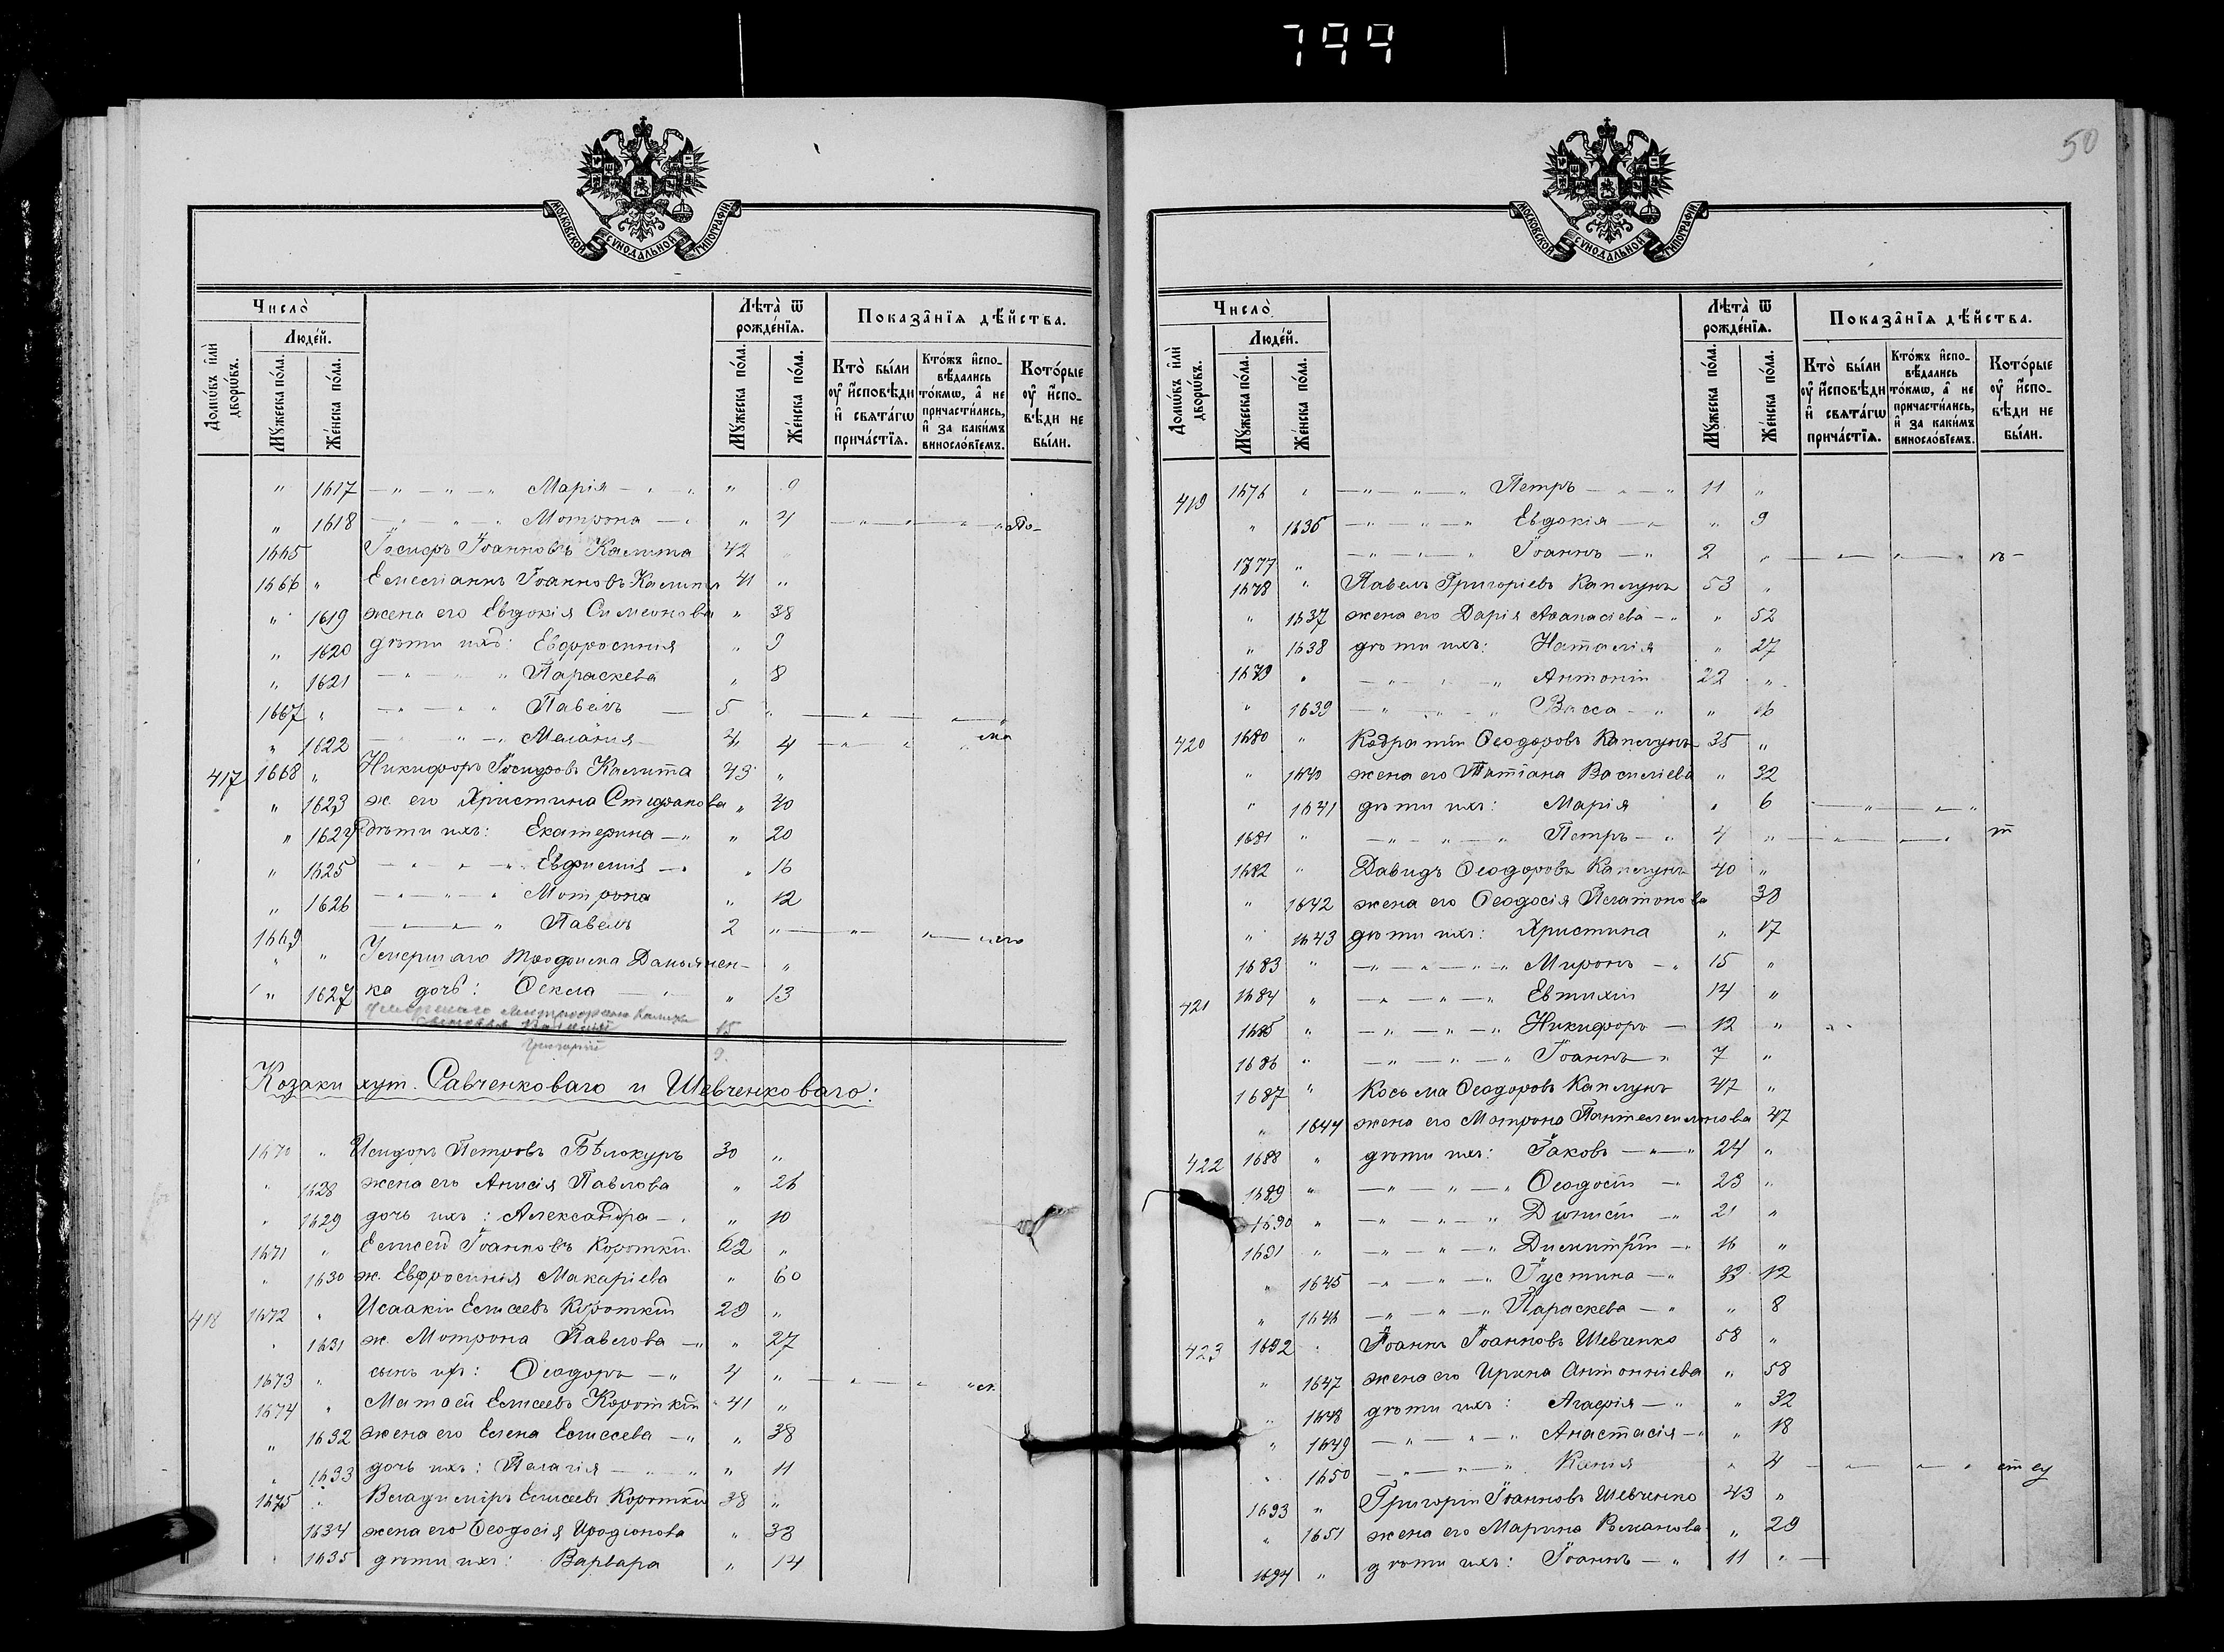 799
50
МОСКОВСКОЙ СѴНОДАЛЬНОЙ ТИПОГРАФІИ
Число̀
Люде́й.
Домѡ́въ и҆лѝ дворѡ́въ.
Мꙋ́жеска по́ла.
Же́нска по́ла.
Лѣта̀ ѿ рожде́нїѧ.
Мꙋ́жеска по́ла.
Же́нска по́ла.
Показа̑нїѧ дѣ́йства.
Кто̀ бы́ли оу҆ и҆́сповѣди и҆ свѧта́гѡ прича́стїѧ.
Кто́жъ и҆спо-вѣ́дались то́кмѡ, а҆ не причасти́лись, и҆ за каки́мъ виносло́вїемъ.
Кото́рые оу҆ и҆́спо-вѣди не бы́ли.
" 1617 — " — " — " Марія — " — " " 9
" 1618 — " — " — " Мотрона — " " 4 — " — " — " " по-
1665 Іосифъ Іоанновъ Калита 42
1666 " Емеліанъ Іоанновъ Калита 41 "
" 1619 жена его Евдокія Симеонова " 38
" 1620 дѣти ихъ: Евфросинія " 9
" 1621 — " — " — " Параскева " 8
1667 " — " — " — " Павелъ — 5 "
" 1622 — " — " — " Меланія — 4
417 1668 " Никифоръ Іосифовъ Калита 43 "
" 1623 ж. его Христина Стефанова " 40
" 1624 дѣти ихъ: Екатерина — " " 20
" 1625 — " — " — " Евфимія — " " 16
" 1626 — " — " — " Мотрона " 12
1669 — " — " — " Павелъ 2 "
" " Умершаго Трофима Дамьянен-
" 1627 ка дочь: Ѳекла — " — " 13
Умершаго
15
Григорій 9.
Козаки хут. Савченковаго и Шевченковаго:
1670 " Исидоръ Петровъ Бѣлокуръ 30 "
" 1628 жена его Анисія Павлова " 26
" 1629 дочь ихъ: Александра — " " 10
1671 " Елисей Іоанновъ Короткій 62 "
" 1630 ж. Евфросинія Макаріева " 60
418 1672 " Исаакій Елисеевъ Короткій 29 "
" 1631 ж. Мотрона Павлова — " " 27
1673 " сынъ ихъ: Ѳеодоръ — " 4 "
1674 " Матѳей Елисеевъ Короткій 41 "
" 1632 жена его Елена Елисеева — " " 38
" 1633 дочь ихъ: Пелагія — " — " " 11
1675 " Владиміръ Елисеевъ Короткій 38 "
1634 жена его Ѳеодосія Иродіонова " 38
1635 дѣти ихъ: Варвара " 14
МОСКОВСКОЙ СѴНОДАЛЬНОЙ ТИПОГРАФІИ
Число̀
Люде́й.
Домѡ́въ и҆лѝ дворѡ́въ.
Мꙋ́жеска по́ла.
Же́нска по́ла.
Лѣта̀ ѿ рожде́нїѧ.
Мꙋ́жеска по́ла.
Же́нска по́ла.
Показа̑нїѧ дѣ́йства.
Кто̀ бы́ли оу҆ и҆́сповѣди и҆ свѧта́гѡ прича́стїѧ.
Кто́жъ и҆спо-вѣ́дались то́кмѡ, а҆ не причасти́лись, и҆ за каки́мъ виносло́вїемъ.
Кото́рые оу҆ и҆́спо-вѣди не бы́ли.
419 1676 " — " — " — " Петръ — " — " 11 "
" 1636 — " — " — " Евдокія — " " 9
1677 " — " — " — " Іоаннъ — " 2 "
1678 " Павелъ Григоріевъ Каплунъ 53 "
" 1637 жена его Дарія Аѳанасіева — " " 52
" 1638 дѣти ихъ: Наталія " 27
1679 " — " — " — " Антоній 22 "
" 1639 — " — " — " Васса — " " 16
420 1680 " Кодратій Ѳеодоровъ Каплунъ 35 "
" 1640 жена его Татіана Василіева " 32
" 1641 дѣти ихъ: Марія " 6
1681 " — " — " — " Петръ — " 4 "
1682 " Давидъ Ѳеодоровъ Каплунъ 40 "
" 1642 жена его Ѳеодосія Платонова 38
" 1643 дѣти ихъ: Христина " 17
1683 " — " — " — " Миронъ — " 15 "
421 1684 " — " — " — " Евтихій 14 "
1685 " — " — " — " Никифоръ — 12 "
1686 " — " — " — " Іоаннъ — " 7 "
1687 " Косьма Ѳеодоровъ Каплунъ 47 "
" 1644 жена его Мотрона Пантелеимонова 47
422 1688 " дѣти ихъ: Іаковъ — " — " 24 "
1689 " — " — " — " Ѳеодосій — " 23 "
1690 " — " — " — " Діонисій — " 21 "
1691 " — " — " — " Димитрій — " 16 "
" 1645 — " — " — " Іустина — " 12
" 1646 — " — " — " Параскева — " " 8
423 1692 " Іоаннъ Іоанновъ Шевченко 58 "
" 1647 жена его Ирина Антоніева " 58
" 1648 дѣти ихъ: Агафія — " " 32
" 1649 — " — " — " Анастасія — " " 18
" 1650 — " — " — " Ксенія " 4
1693 " Григорій Іоанновъ Шевченко 43 "
" 1651 жена его Марина Романова " 29
1694 " дѣти ихъ: Іоаннъ — " 11 "